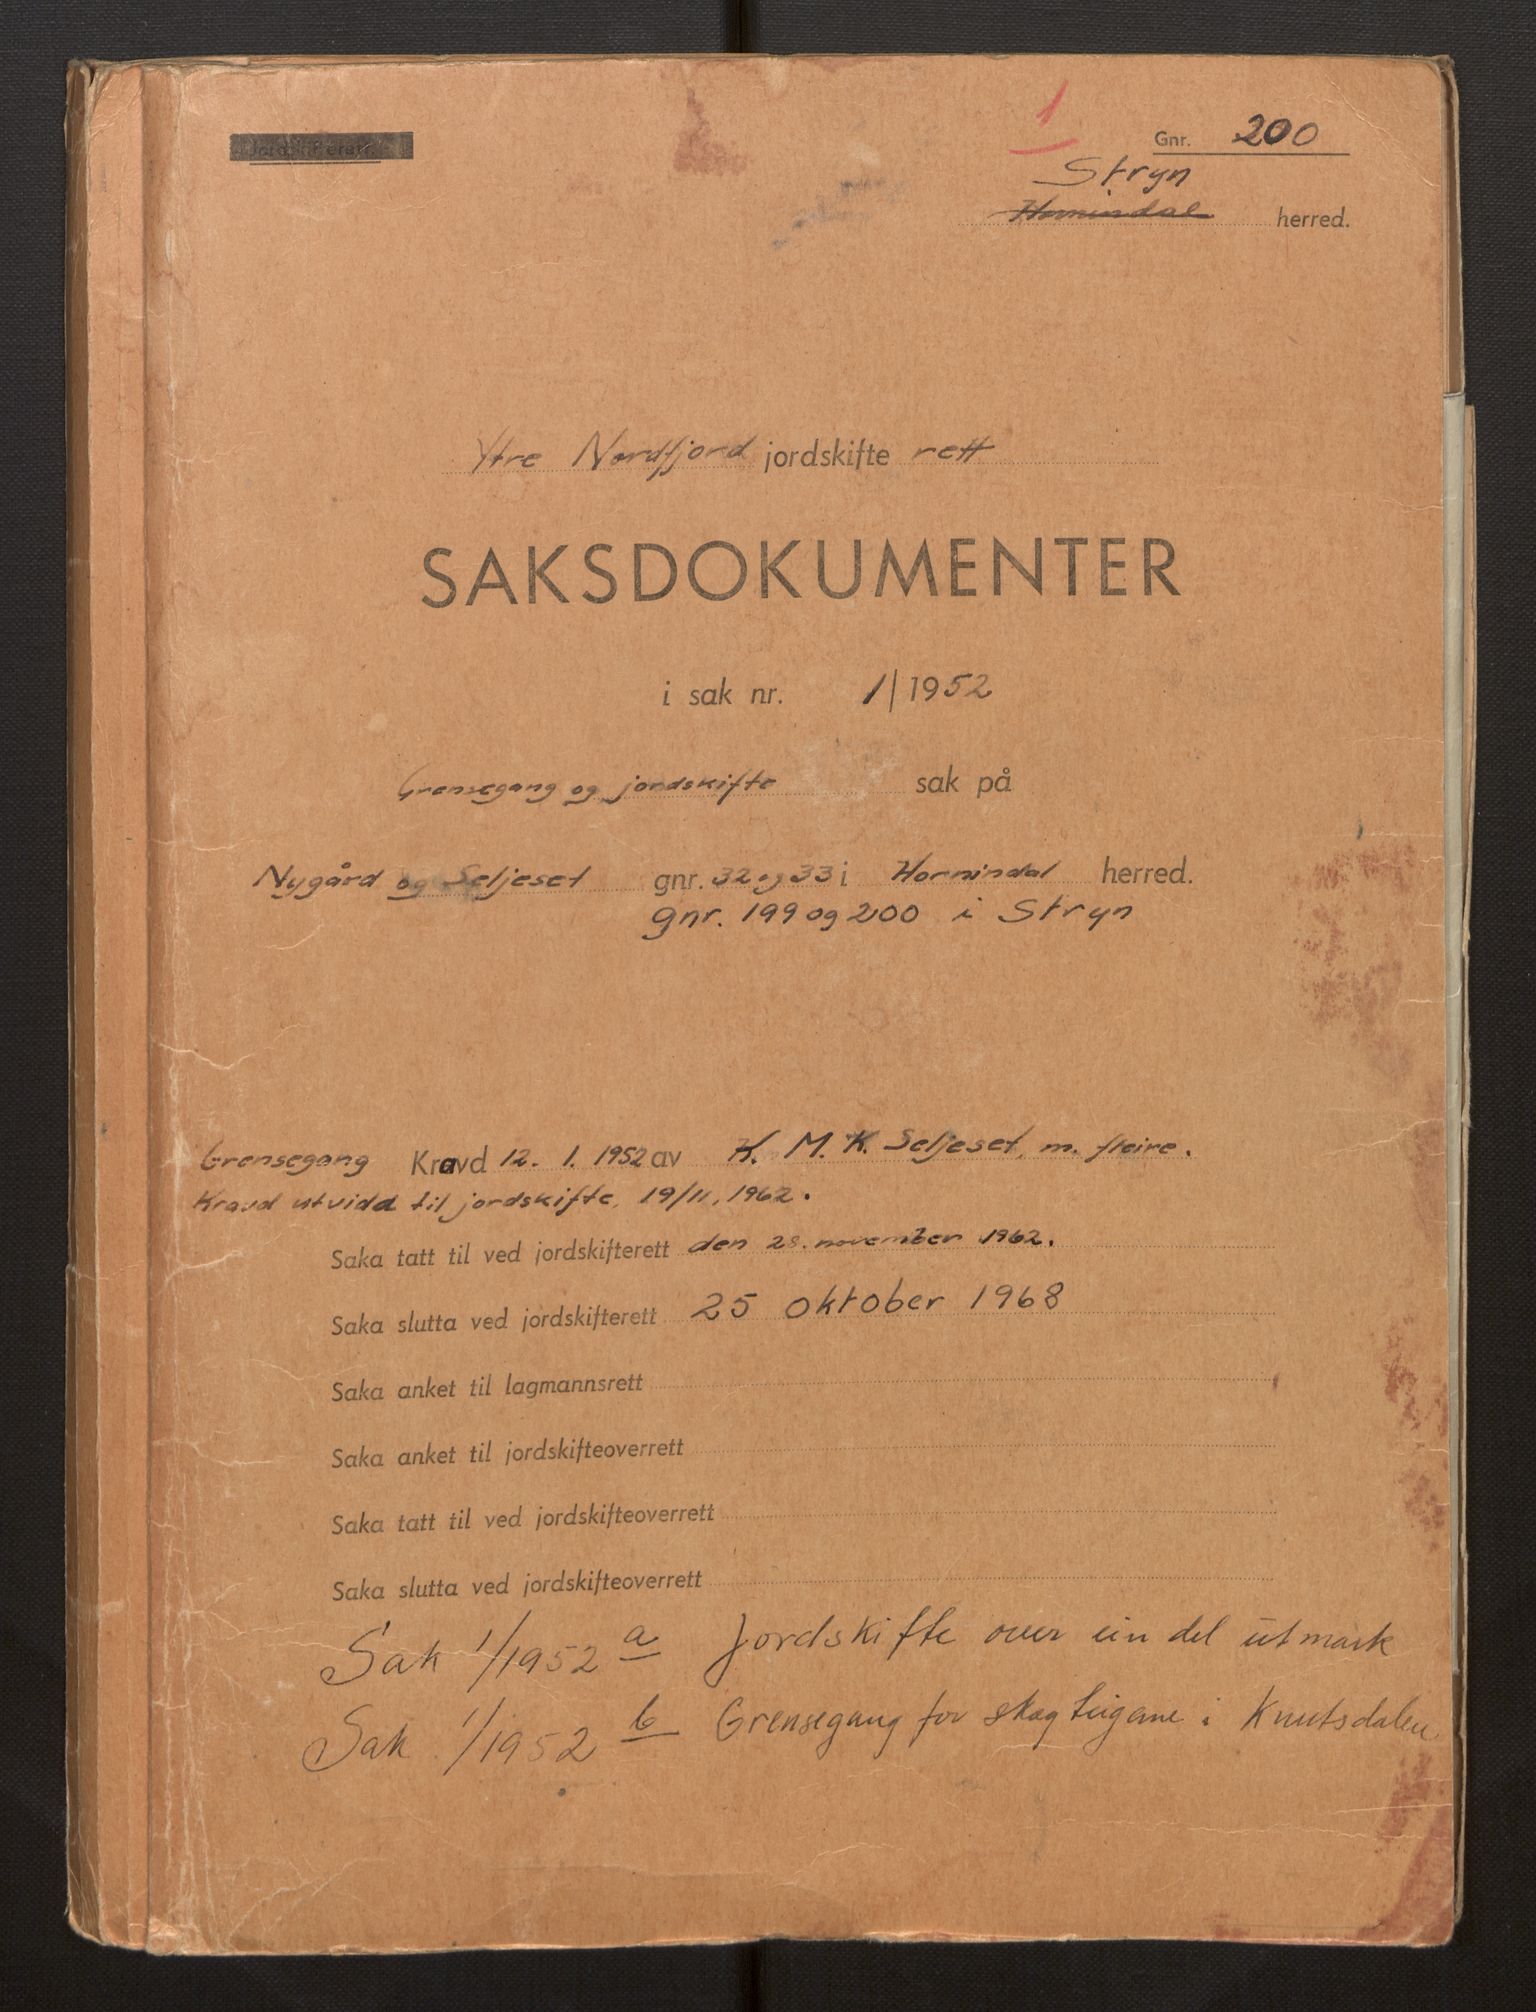 1
Jordskifterett
Gnr. 200
Stryn
Hornindal herred.
Ytre Nordfjord jordskifte rett
SAKSDOKUMENTER
i sak nr. 1/1952
Grensegang og jordskifte sak på
Nygård og Seljeset gnr. 32 og 33 i Hornindal herred.
gnr. 199 og 200 i Stryn
Grensegang Kravd 12. 1. 1952 av K. M. K. Seljeset, m. fleire.
Kravd utvida til jordskifte, 19/11, 1962.
Saka tatt til ved jordskifterett den 28. november 1962.
Saka slutta ved jordskifterett 25 oktober 1968
Saka anket til lagmannsrett
Saka anket til jordskifteoverrett
Saka tatt til ved jordskifteoverrett
Saka slutta ved jordskifteoverrett
Sak 1/1952 a Jordskifte over ein del utmark
Sak 1/1952 b Grensegang for skogteigane i Knutsdalen